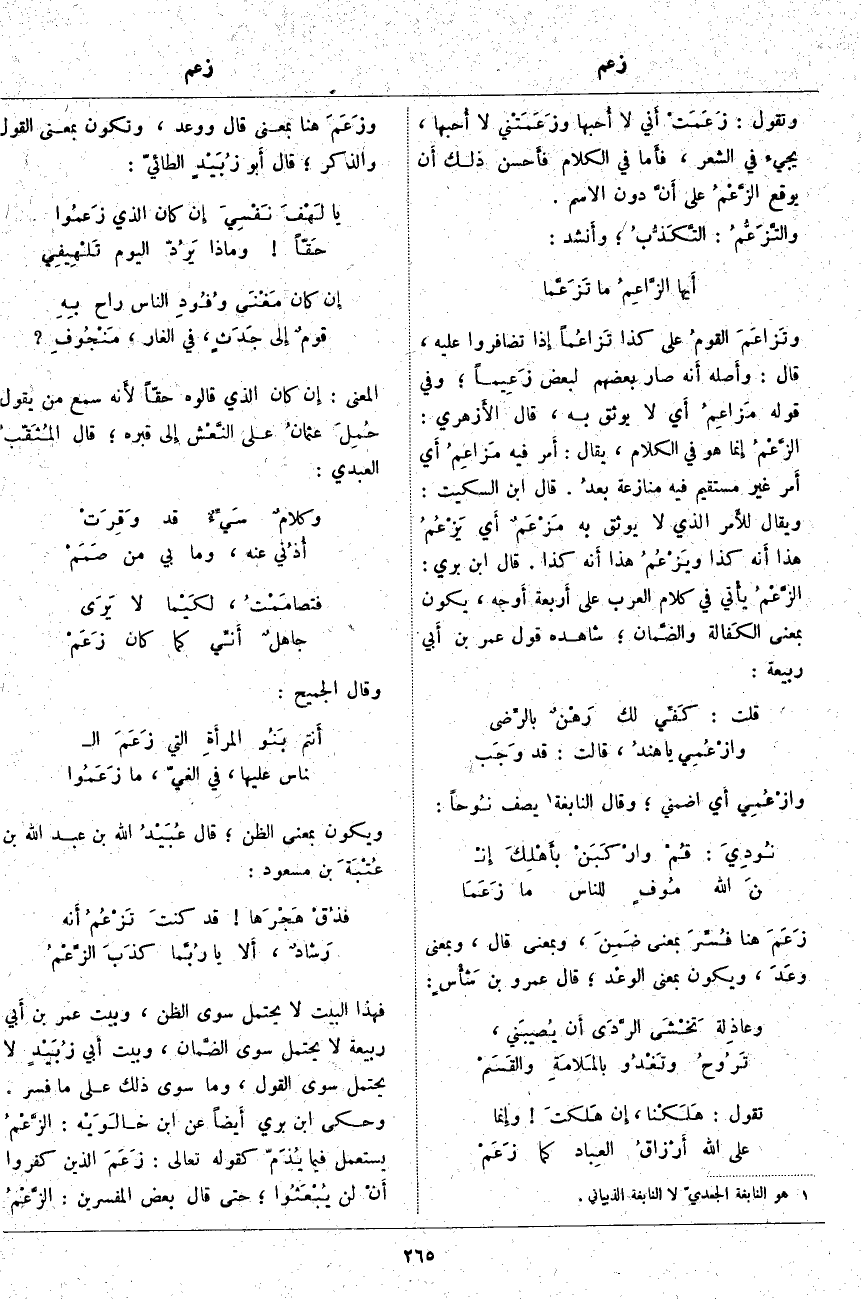 زعم
زعم
وتقول : زَعَمَتْ أني لا أُحبها وزَعَمَتْني لا أُحبها ،
يجيء في الشعر ، فأما في الكلام فأحسن ذلك أن
يوقع الزَّعْمُ على أنَّ دون الاسم .
والتَّزَعُّمُ : التَّكَذُّبُ ؛ وأنشد :
أيها الزَّاعِمُ ما تَزَعَّما
وتَزاعَمَ القومُ على كذا تَزاعُماً إذا تضافروا عليه ،
قال : وأصله أنه صار بعضهم لبعض زَعِيماً ؛ وفي
قوله مَزاعِمُ أي لا يوثق به ، قال الأزهري :
الزَّعْمُ إنما هو في الكلام ، يقال : أمر فيه مَزاعِمُ أي
أمر غير مستقيم فيه منازعة بعدُ . قال ابن السكيت :
ويقال للأمر الذي لا يوثق به مَزْعَمٌ أي يَزْعُمُ
هذا أنه كذا ويَزْعُمُ هذا أنه كذا . قال ابن بري :
الزَّعْمُ يأتي في كلام العرب على أربعة أوجه ، يكون
بمعنى الكَفالة والضَّمان ؛ شاهده قول عمر بن أبي
ربيعة :
قلت : كَفِّي لك رَهْنٌ بالرِّضى
وازْعُمِي يا هندُ ، قالت : قد وَجَب
وازْعُمِي أي اضمني ؛ وقال النابغة١ يصف نُوحاً :
نُودِيَ : قُمْ وارْكَبَنْ بأَهْلِكَ إنْـ
نَ الله مُوفٍ للناس ما زَعَمَا
زَعَمَ هنا فُسِّرَ بمعنى ضَمِنَ ، وبمعنى قال ، وبمعنى
وعَدَ ، ويكون بمعنى الوعْد ؛ قال عمرو بن شَأْسٍ :
وعاذِلة تَخْشَى الرَّدَى أن يُصيبَني ،
تَرُوحُ وتَغْدُو بالمَلامَةِ والقَسَمْ
تقول : هَلَكْنا ، إن هَلَكتَ ! وإنما
على الله أَرْزاقُ العِباد كما زَعَمْ
١ هو النابغة الجعديّ لا النابغة الذبياني .
وزَعَمَ هنا بمعنى قال ووعد ، وتكون بمعنى القول
والذكر ؛ قال أبو زُبَيْدٍ الطائيّ :
يا لَهْفَ نَفْسِيَ إن كان الذي زَعمُوا
حَقّاً ! وماذا يَرُدّ اليوم تَلْهِيفِي
إن كان مَغْنَى وُفُودِ الناس راح بِهِ
قومٌ إلى جَدَثٍ، في الغار ، مَنْجُوفِ ?
المعنى : إن كان الذي قالوه حقّاً لأنه سمع من يقول
حُمِلَ عثمانُ على النَّعْش إلى قبره ؛ قال المُثَقِّبُ
العبدي :
وكلامٌ سَيِّءٌ قد وَقِرَتْ
أُذُني عنه ، وما بي من صَمَمْ
فتصامَمْتُ ، لكَيْما لا يَرَى
جاهلٌ أَنِّي كما كان زَعَمْ
وقال الجميح :
أنتم بَنُو المرأةِ التي زَعَمَ الـ
ناس عليها، في الغيّ ، ما زَعَمُوا
ويكون بمعنى الظن ؛ قال عُبَيْدُ الله بن عبد الله بن
عُتْبَةَ بن مسعود :
فذُقْ هَجْرَها ! قد كنتَ تَزْعُمُ أنه
رَشادٌ ، ألا يا رُبَّما كذَبَ الزَّعْمُ
فهذا البيت لا يحتمل سوى الظن ، وبيت عمر بن أبي
ربيعة لا يحتمل سوى الضَّمان ، وبيت أبي زُبَيْدٍ لا
يحتمل سوى القول ، وما سوى ذلك على ما فسر .
وحكى ابن بري أيضاً عن ابن خالَوَيْه : الزَّعْمُ
يستعمل فيما يُذَمّ كقوله تعالى : زَعَمَ الذين كفروا
أنْ لن يُبْعَثُوا ؛ حتى قال بعض المفسرين : الزَّعْمُ
٢٦٥